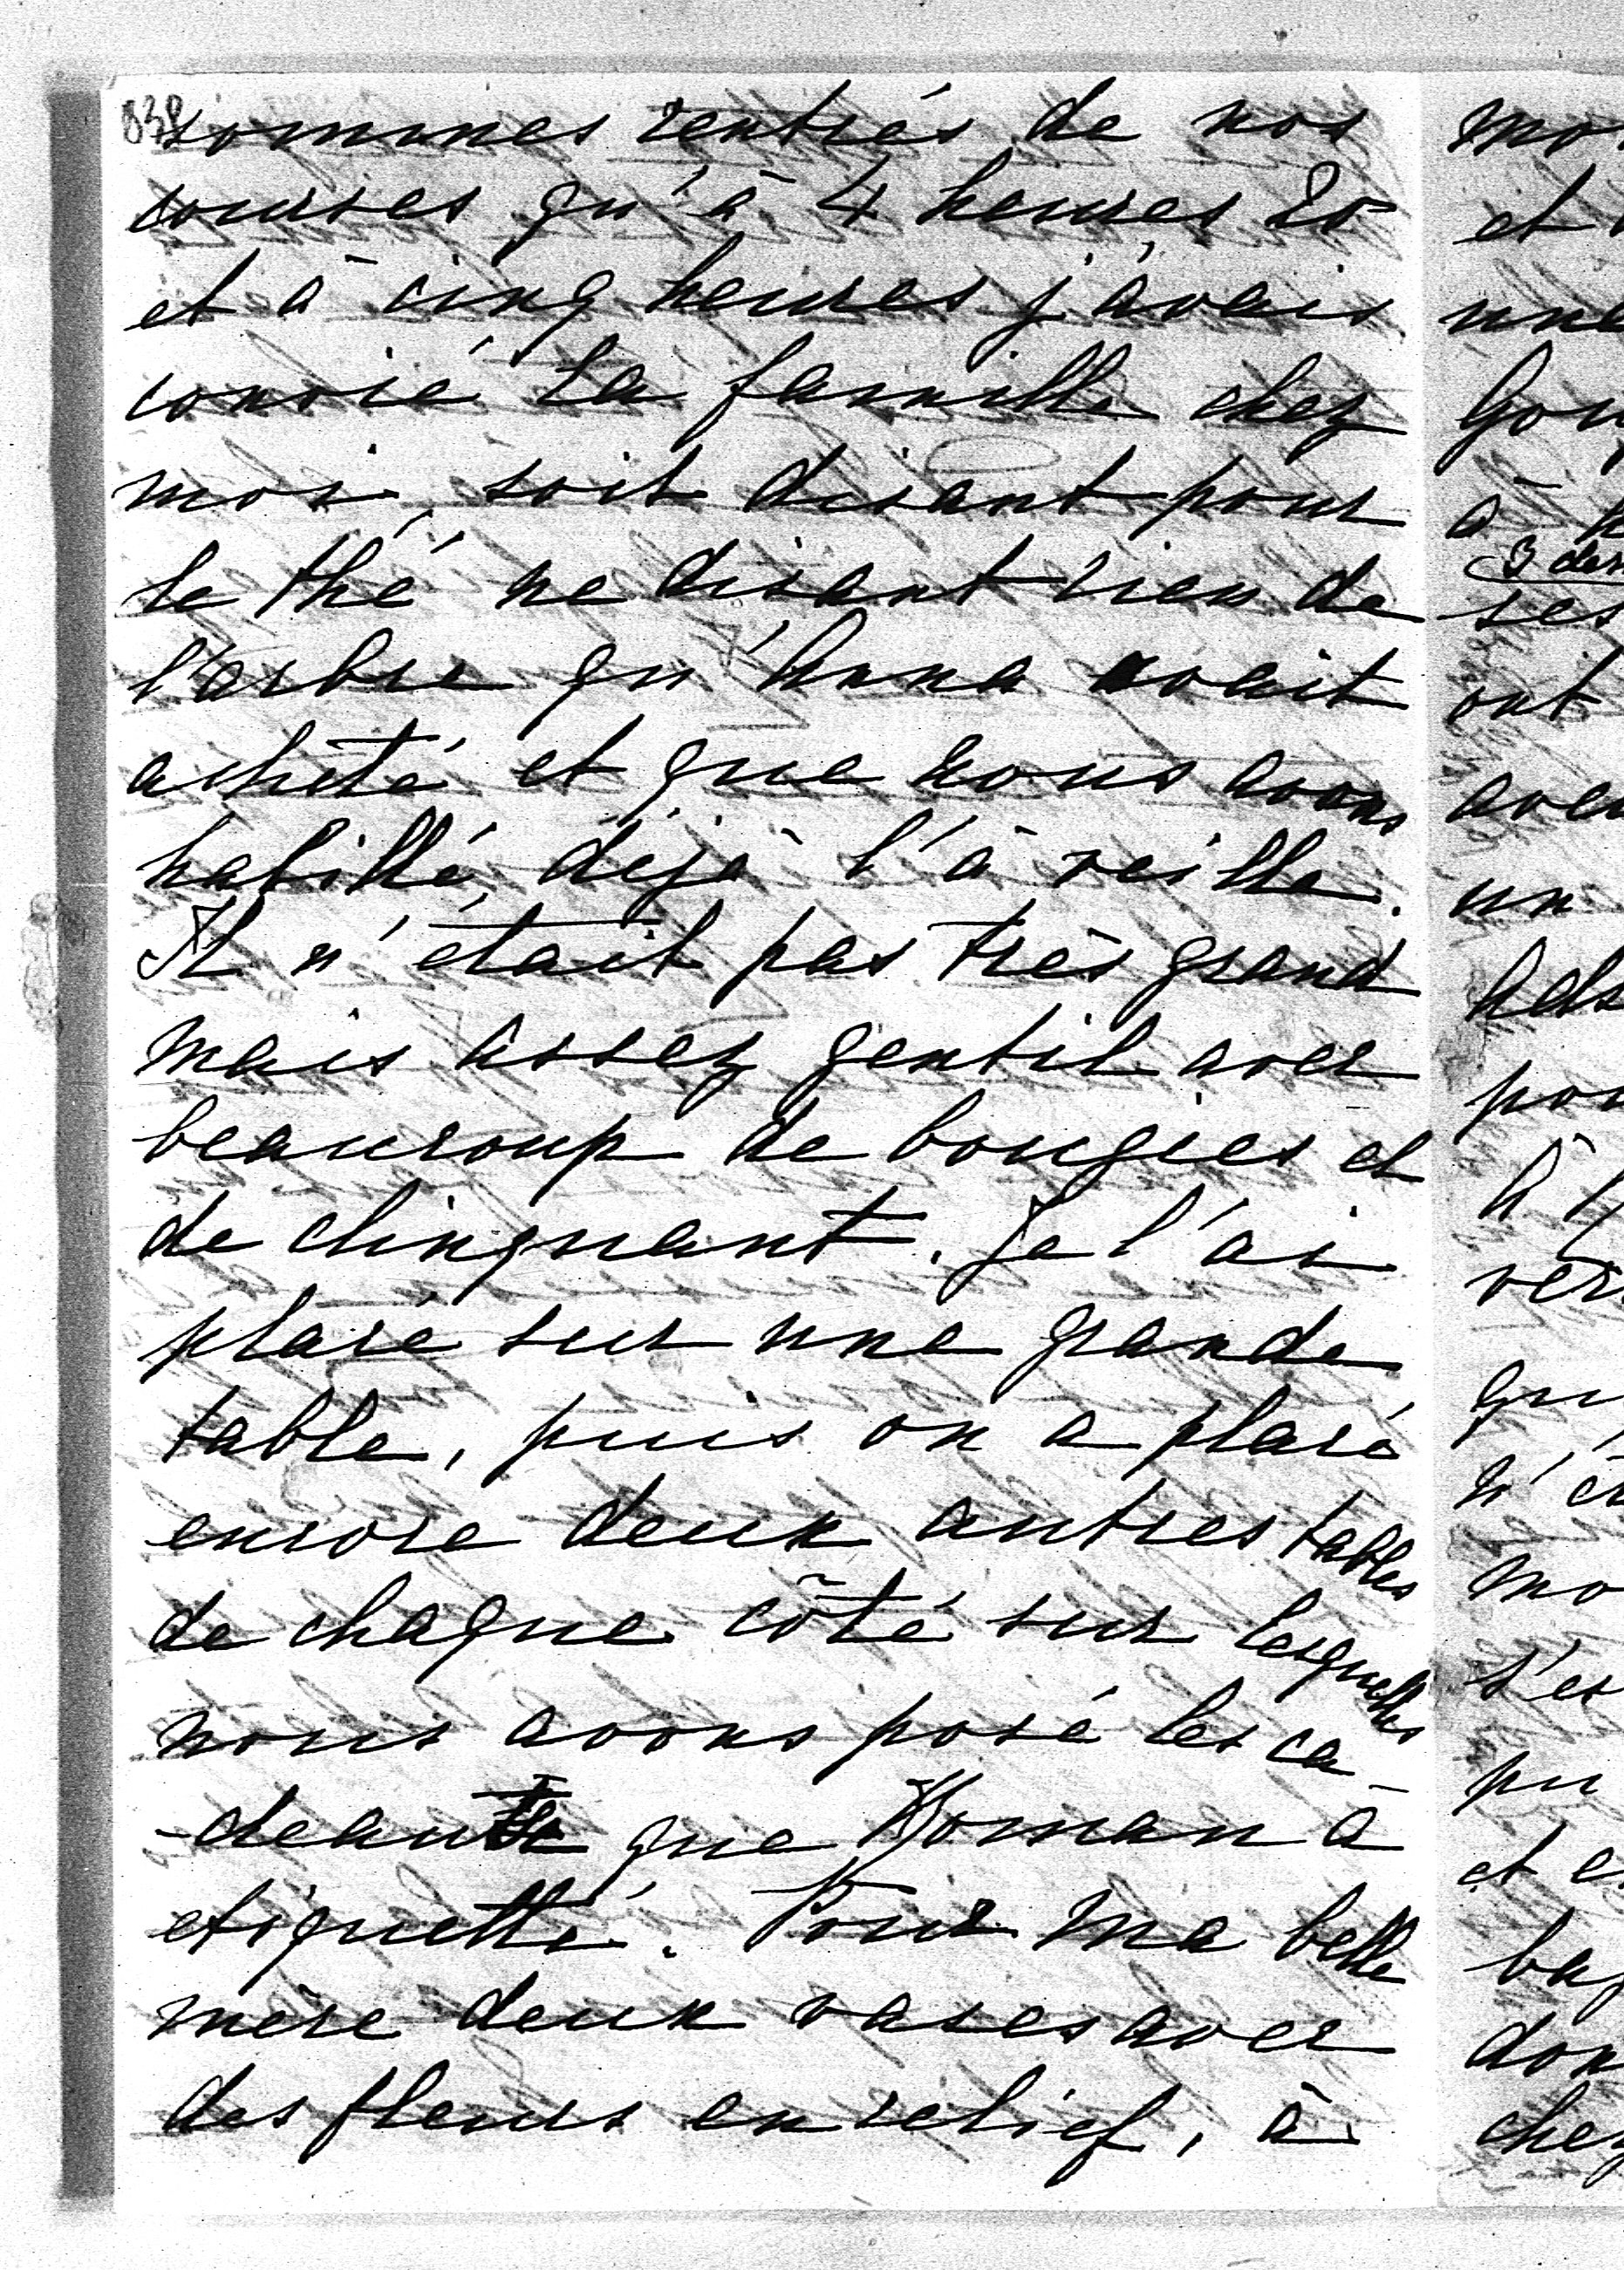 838
sommes rentrés de nos
courses qu'à 4 heures 20
et à cinq heures j'avais
convié la famille chez
moi, soit disant pour
le thé ne disant rien de
l'arbre qu'Anna avait
acheté et que nous avons
habillé, déjà l'à veille.
Il n'était pas très grand
mais assez gentil avec
beaucoup de bougies et
de clinquant. Je l'ai
placé sur une grande
table, puis on a placé
encore deux autres tables
de chaque côté sur lesquelles
nous avons posé les ca-
-deaux que Roman a
etiquetté. Pour ma belle
mère deux vases avec
des fleurs en relief, à
mo
et
une
à
3 de
ses
ont
avec
un
pou
à
ver
qu
mo
s'es
pu
et e
don
chez